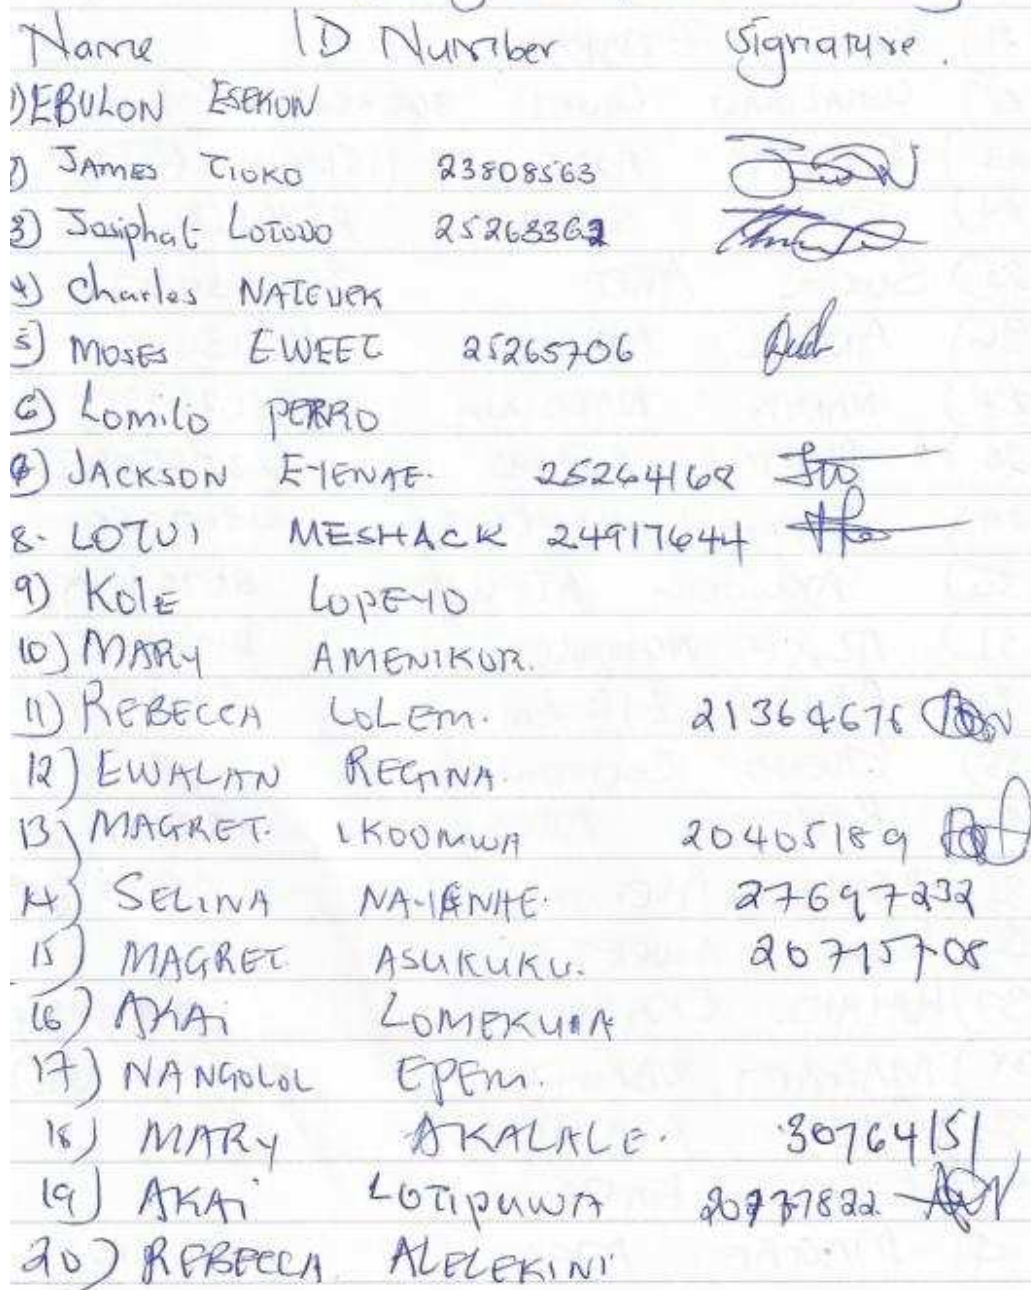 Name ID Number Signature.
1) EBULON ESEKON
2) JAMES CIOKO 23808563
3) Josiphat LOTODO 25263362
4) Charles NATEUEK
5) MOSES EWEET 25265706
6) Lomilo PERRO
7) JACKSON EYENAE. 25264168
8. LOTUI MESHACK 24917644
9) KOLE LOPEYO
10) MARY AMENIKOR.
11) REBECCA LOLEM. 21364676
12) EWALAN REGINA.
13) MAGRET. IKOOMWA 20405189
14) SELINA 27697232
15) MAGRET ASUKUKU. 20715708
16) AKAi LOMEKUIA
17) NANGOLOL EPEM.
18) MARY AKALALE. 30764151
19) AKAi LOTIPUWA
20) REBECCA ALELEKINI